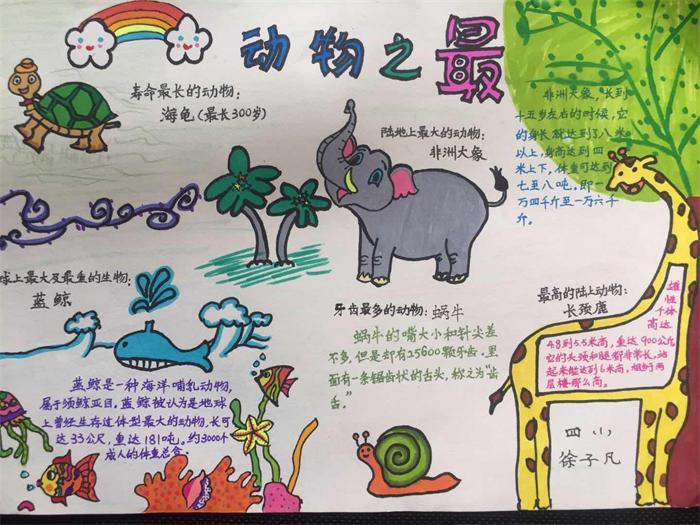 动物之最
寿命最长的动物:
海龟(最长300岁)
陆地上最大的动物:
非洲大象
非洲大象,长到
十五岁左右的时候,它
的身长就达到了八米
以上,身高达到四
米上下,体重可达到
七至八吨,即一
万四千斤至一万六千
斤。
球上最大及最重的生物:
蓝鲸
蓝鲸是一种海洋哺乳动物,
属于须鲸亚目。蓝鲸被认为是地球
上曾经生存过体型最大的动物,长可
达33公尺,重达181吨,约3000个
成人的体重总合。
牙齿最多的动物:蜗牛
蜗牛的嘴大小和针尖差
不多,但是却有25600颗牙齿.里
面有一条锯齿状的舌头,称之为“齿
舌。
最高的陆上动物:
长颈鹿
雄性个体
高达
4.8到5.5米高,重达900公斤
它的头颈和腿都非常长,站
起来能达到6米高,相当于两
层楼那么高。
四小
徐子凡